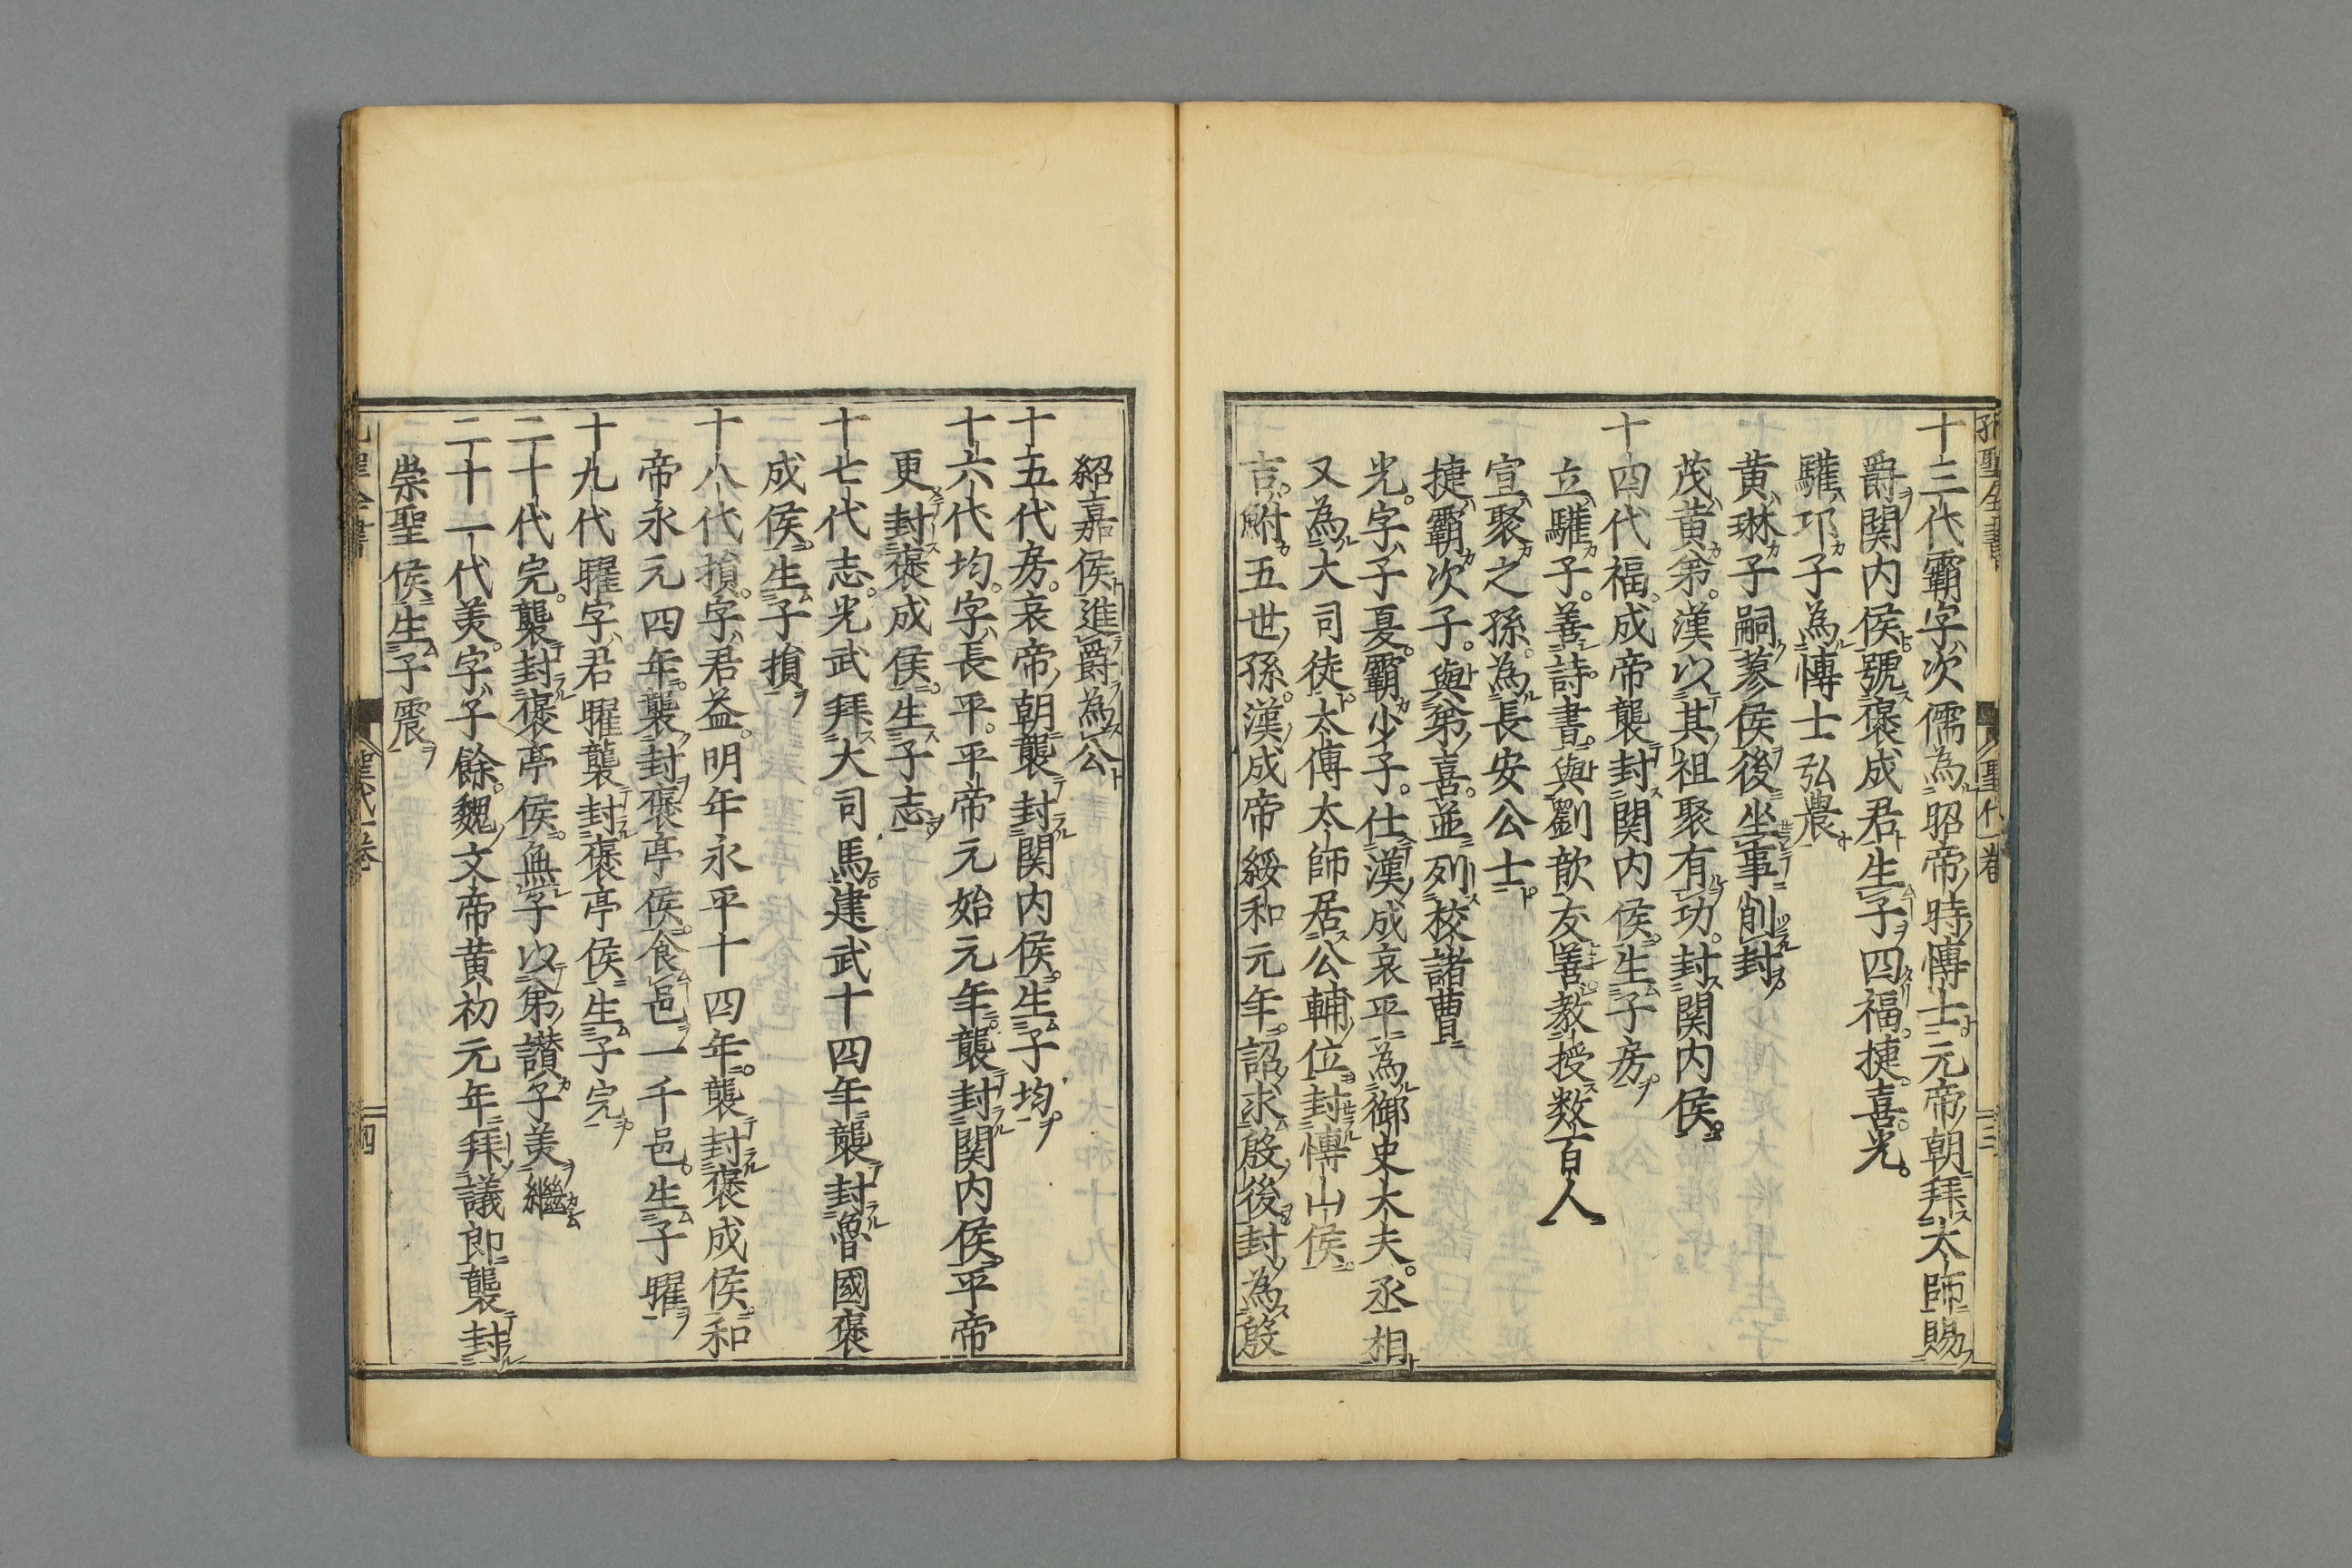 孔聖全書　聖代一巻　三
十三代霸字次儒為昭帝時博士元帝朝拜太師賜
爵関内侯號褒成君生子四福捷喜光
驩卭子為博士弘農
黄琳子嗣蓼侯後坐事削封
茂黄弟漢以其祖聚有功封関内侯
十四代福成帝襲封関内侯生子房
立驩子善詩書與劉歆友善教授数百人
宣聚之孫為長安公士
捷霸次子與弟喜並列校諸曹
光字子夏霸少子仕漢成哀平為御史大夫丞相
又為大司徒太傅太師居公輔位封博山侯
吉鮒五世孫漢成帝綏和元年詔求殷後封為殷
紹嘉侯進爵為公
十五代房哀帝朝襲封関内侯生子均
十六代均字長平平帝元始元年襲封関内侯平帝
更封褒成侯生子志
十七代志光武拜大司馬建武十四年襲封魯國褒
成侯生子損
十八代損字君益明年永平十四年襲封褒成侯和
帝永元四年襲封褒亭侯食邑一千邑生子曜
十九代曜字君曜襲封褒亭侯生子完
二十代完襲封褒亭侯無子以弟讃子美繼
二十一代美字子餘魏文帝黄初元年拜議郎襲封
崇聖侯生子震
聖代一巻　四